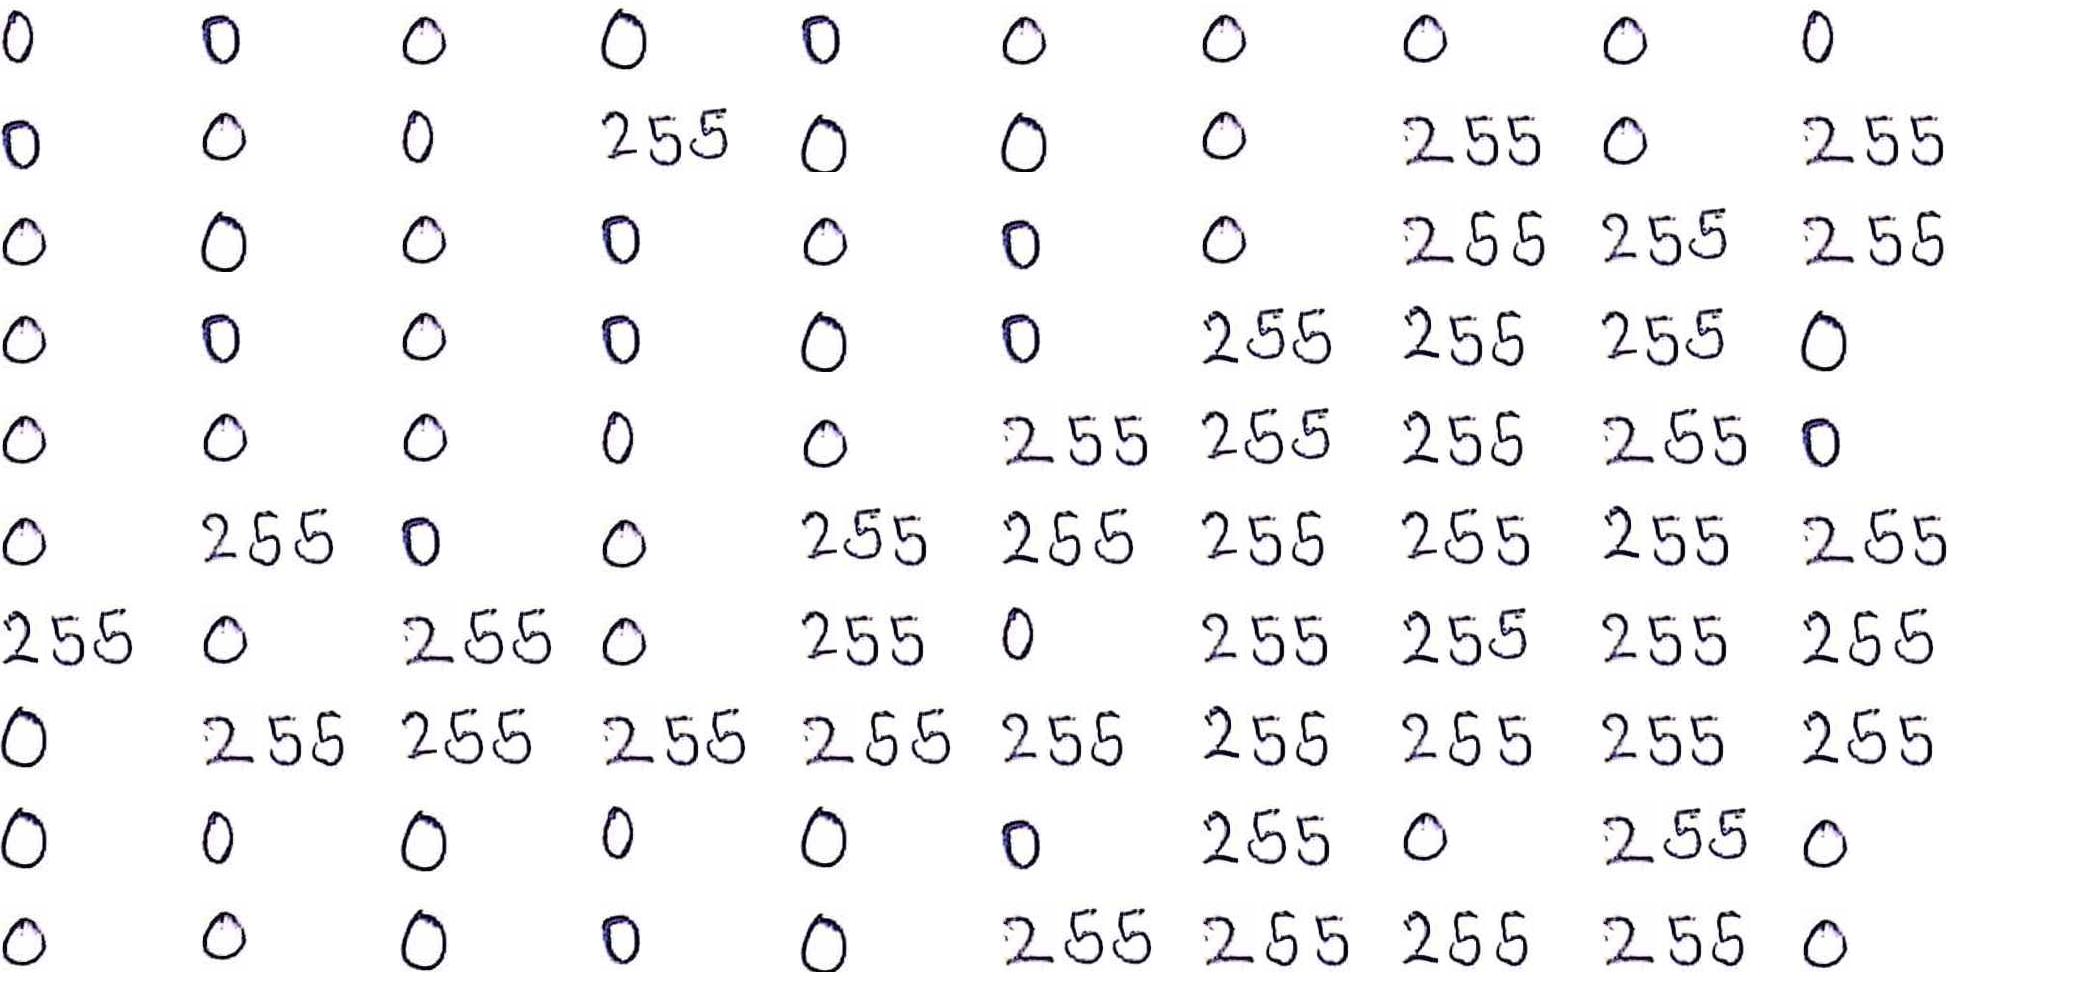 0 0 0 0 0 0 0 0 0 0
0 0 0 255 0 0 0 255 0 255
0 0 0 0 0 0 0 255 255 255
0 0 0 0 0 0 255 255 255 0
0 0 0 0 0 255 255 255 255 0
0 255 0 0 255 255 255 255 255 255
255 0 255 0 255 0 255 255 255 255
0 255 255 255 255 255 255 255 255 255
0 0 0 0 0 0 255 0 255 0
0 0 0 0 0 255 255 255 255 0